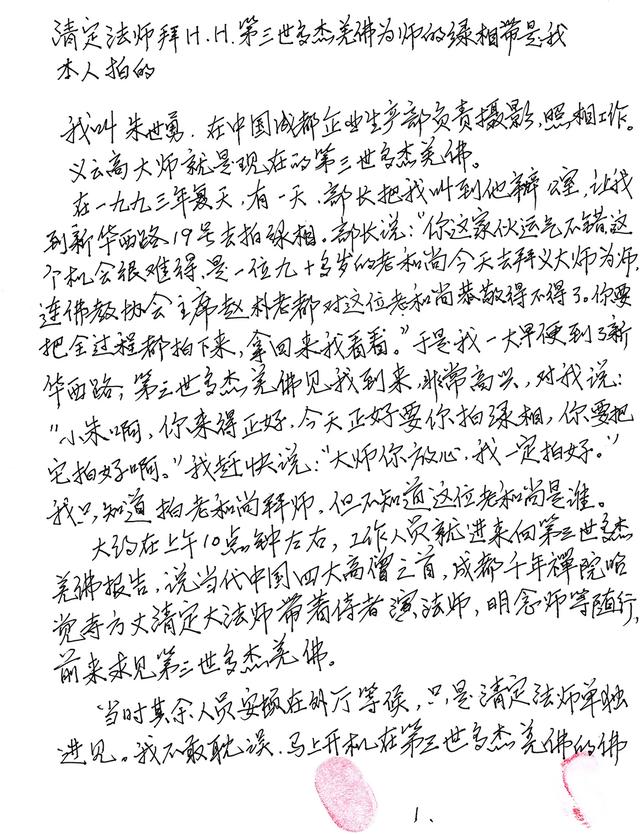 清定法师拜H.H.第三世多杰羌佛为师的录相带是我
本人拍的
我叫朱世勇.在中国成都企业生产部负责摄影,照相工作。
义云高大师就是现在的第三世多杰羌佛。
在一九九三年夏天,有一天,部长把我叫到他辦公室,让我
到新华西路19号去拍录相。部长说:“你这家伙运气不错,这
个机会很难得,是一位九十多岁的老和尚今天去拜义大师为师,
连佛教协会主席赵朴老都对这位老和尚恭敬得不得了。你要
把全过程都拍下来,拿回来我看看。”于是我一大早便到了新
华西路,第三世多杰羌佛见我到来,非常高兴,对我说:
“小朱啊,你来得正好,今天正好要你拍录相,你要把
它拍好啊。”我赶快说:“大师你放心,我一定拍好。”
我只知道拍老和尚拜师,但不知道这位老和尚是谁。
大约在上午10点钟左右,工作人员就进来向第三世多杰
羌佛报告,说当代中国四大高僧之首,成都千年禪院昭
觉寺方丈清定大法师带着侍者演法师,明念师等随行,
前来求见第三世多杰羌佛。
当时其余人员安顿在外厅等候,只是清定法师单独
进见。我不敢耽误,马上开机在第三世多杰羌佛的佛
1.